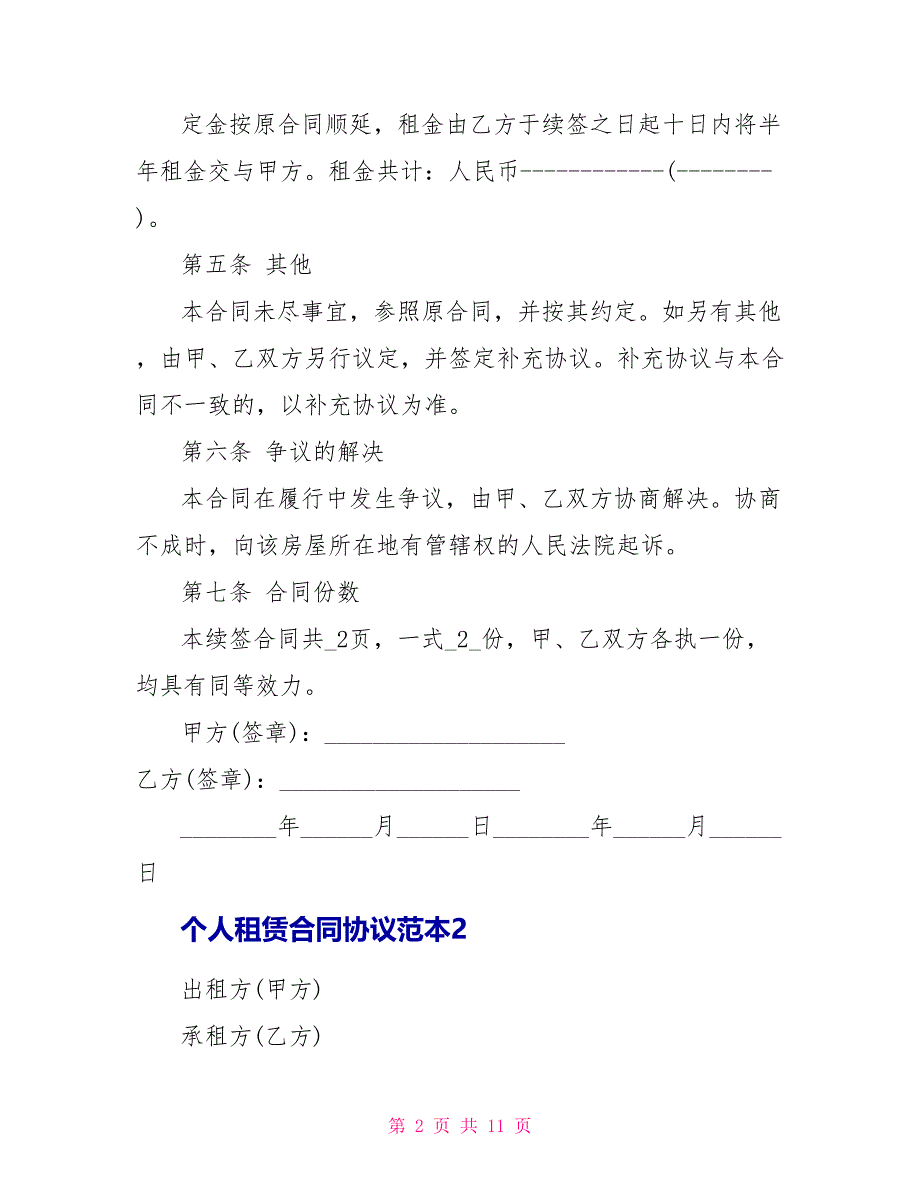 定金按原合同顺延，租金由乙方于续签之日起十日内将半
年租金交与甲方。租金共计：人民币------------(--------
)。
第五条 其他
本合同未尽事宜，参照原合同，并按其约定。如另有其他
，由甲、乙双方另行议定，并签定补充协议。补充协议与本合
同不一致的，以补充协议为准。
第六条 争议的解决
本合同在履行中发生争议，由甲、乙双方协商解决。协商
不成时，向该房屋所在地有管辖权的人民法院起诉。
第七条 合同份数
本续签合同共_2页，一式_2_份，甲、乙双方各执一份，
均具有同等效力。
甲方(签章)：____________________
乙方(签章)：____________________
________年______月______日________年______月______
日
个人租赁合同协议范本2
出租方(甲方)
承租方(乙方)
第 2 页 共 11 页